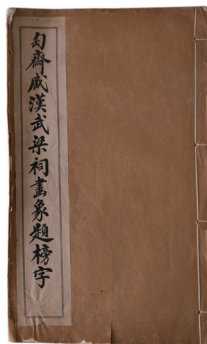 匋齋臧漢武梁祠畫象題榜字